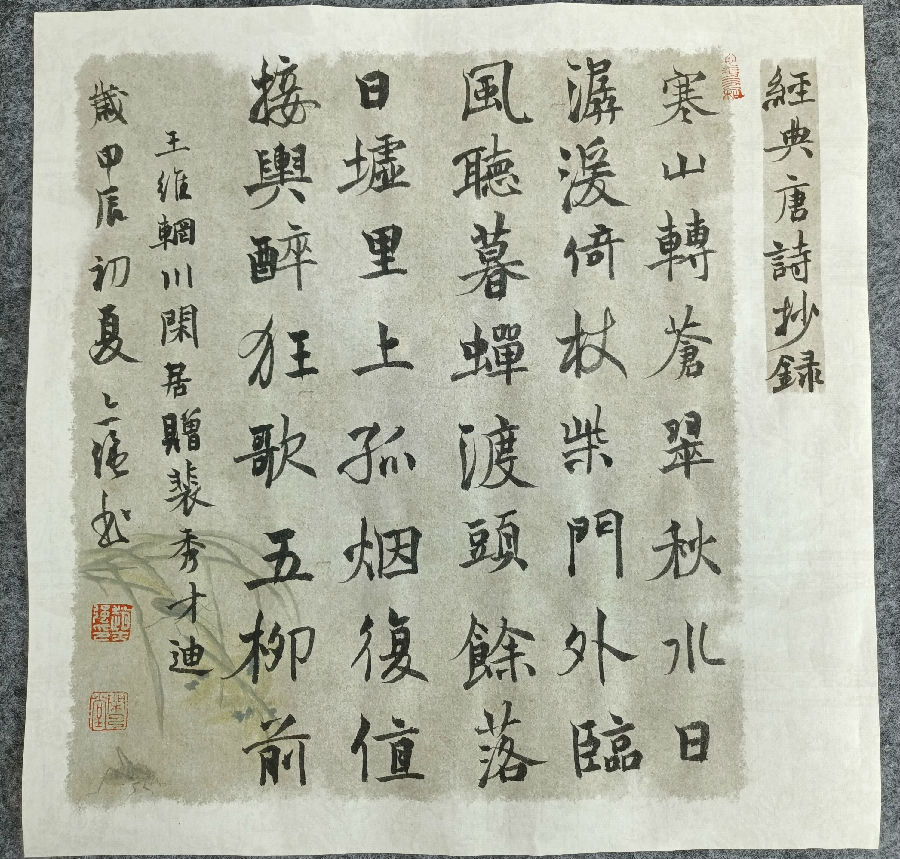 經典唐詩抄録
寒山轉蒼翠秋水日
潺湲倚杖柴門外臨
風聽暮蟬渡頭餘落
日墟里上孤烟復值
接輿醉狂歌五柳前
王維輞川閑居贈裴秀才迪
歲甲辰初夏